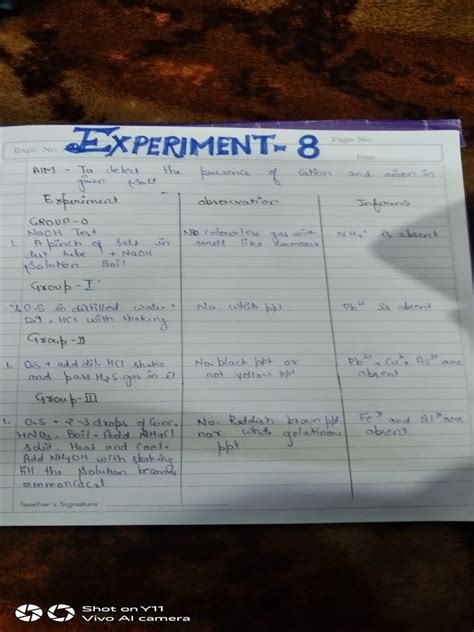 Expt. No.
EXPERIMENT- 8
Page No.
Date
AIM - To detect the presence of Cation and anion in
given salt
Experiment
observation
Inference
GROUP-0
NaOH Test
1. A pinch of salt in
test tube + NaOH
Solution Boil
No colourless gas with
smell like
NH4+ is absent
Group-I
1. O.S in distilled water +
Dil. HCl with shaking
No. white ppt
Pb2+ is absent
Group-II
1. O.S + add dil. HCl shake
and pass H2S gas in it
No. black ppt or
not yellow ppt
Pb2+, Cu2+, As3+ are
absent
Group-III
1. O.S + 2-3 drops of Conc.
HNO3. Boil. Add NH4Cl
solid. Heat and Cool.
Add NH4OH with shaking
till the solution becomes
ammoniacal
No. Reddish brown ppt
nor white gelatinous
ppt.
Fe3+ and Al3+ are
absent
Teacher's Signature :
Shot on Y11
Vivo AI camera